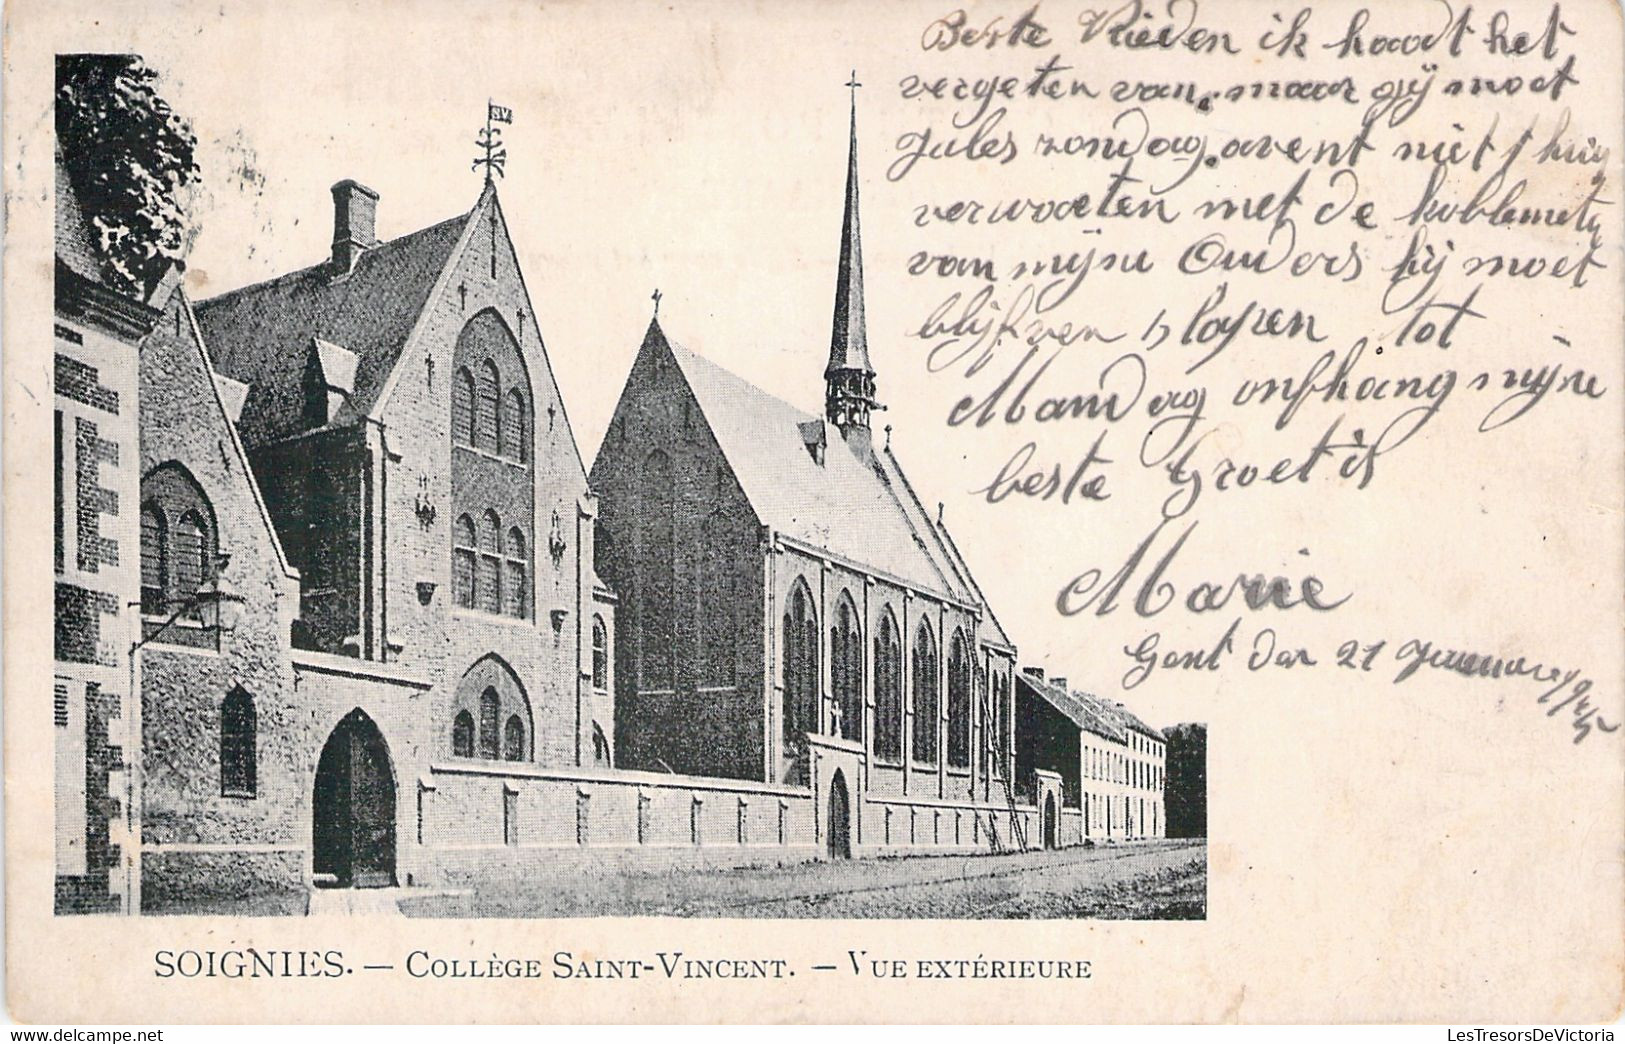 Beste Vrieden ik haodt het
vergeten van. maar gij moet
Jules zondag. avent niet
verwaeten met de
van mijne Ouders hij moet
blijfven slapen tot
Mandag onfhang mijne
beste Groet is
Marie
Gent den 21
SOIGNIES. — COLLÈGE SAINT-VINCENT. — VUE EXTÉRIEURE
LesTresorsDeVictoria